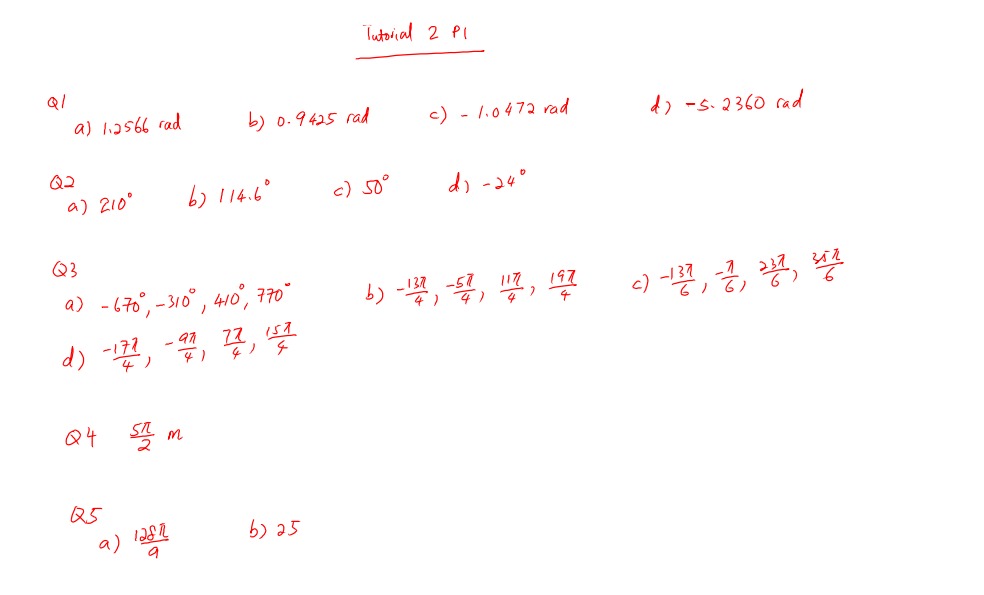 Tutorial 2 P1
Q1
a) 1.2566 rad b) 0.9425 rad c) -1.0472 rad d) -5.2360 rad
Q2
a) 210° b) 114.6° c) 50° d) -24°
Q3
a) -670°, -310°, 410°, 770° b) -13π/4, -5π/4, 11π/4, 19π/4 c) -13π/6, -π/6, 23π/6, 35π/6
d) -17π/4, -9π/4, 7π/4, 15π/4
Q4 5π/2 m
Q5
a) 128π/9 b) 25